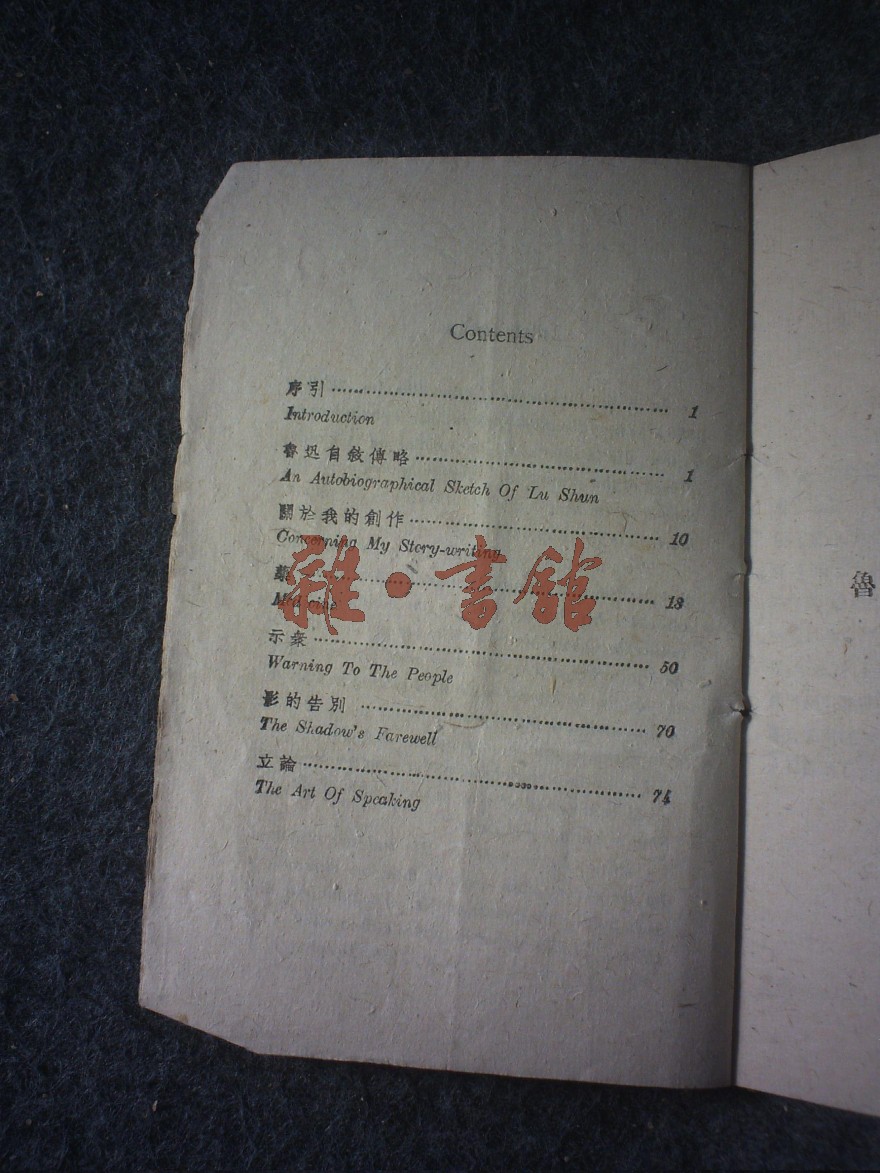 Contents
序引 1
Introduction
魯迅自敘傳略 1
An Autobiographical Sketch Of Lu Shun
關於我的創作 10
Concerning My Story-writing
藥 13
Medicine
示衆 50
Warning To The People
影的告別 70
The Shadow's Farewell
立論 74
The Art Of Speaking
雜·書館
魯